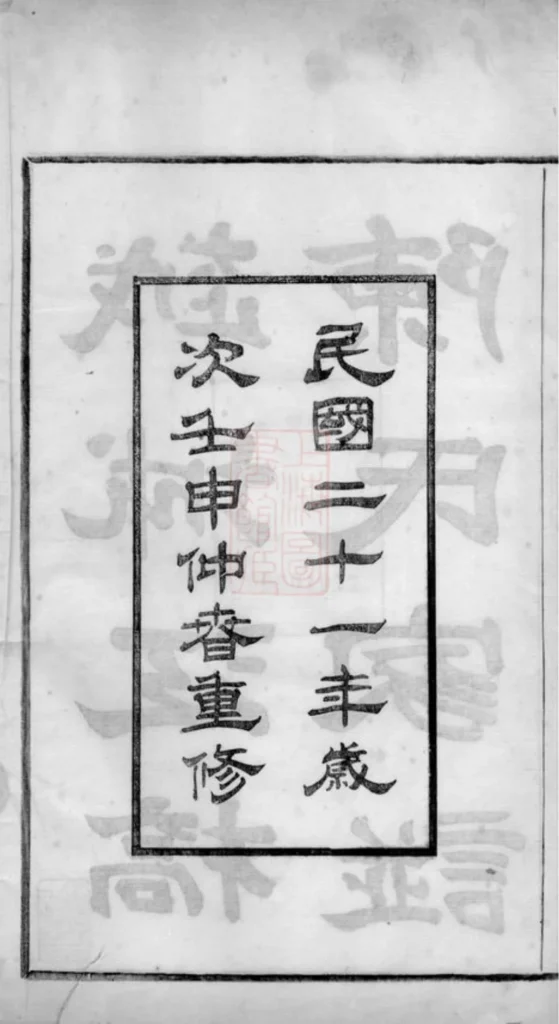 民國二十一年歲
次壬申仲春重修